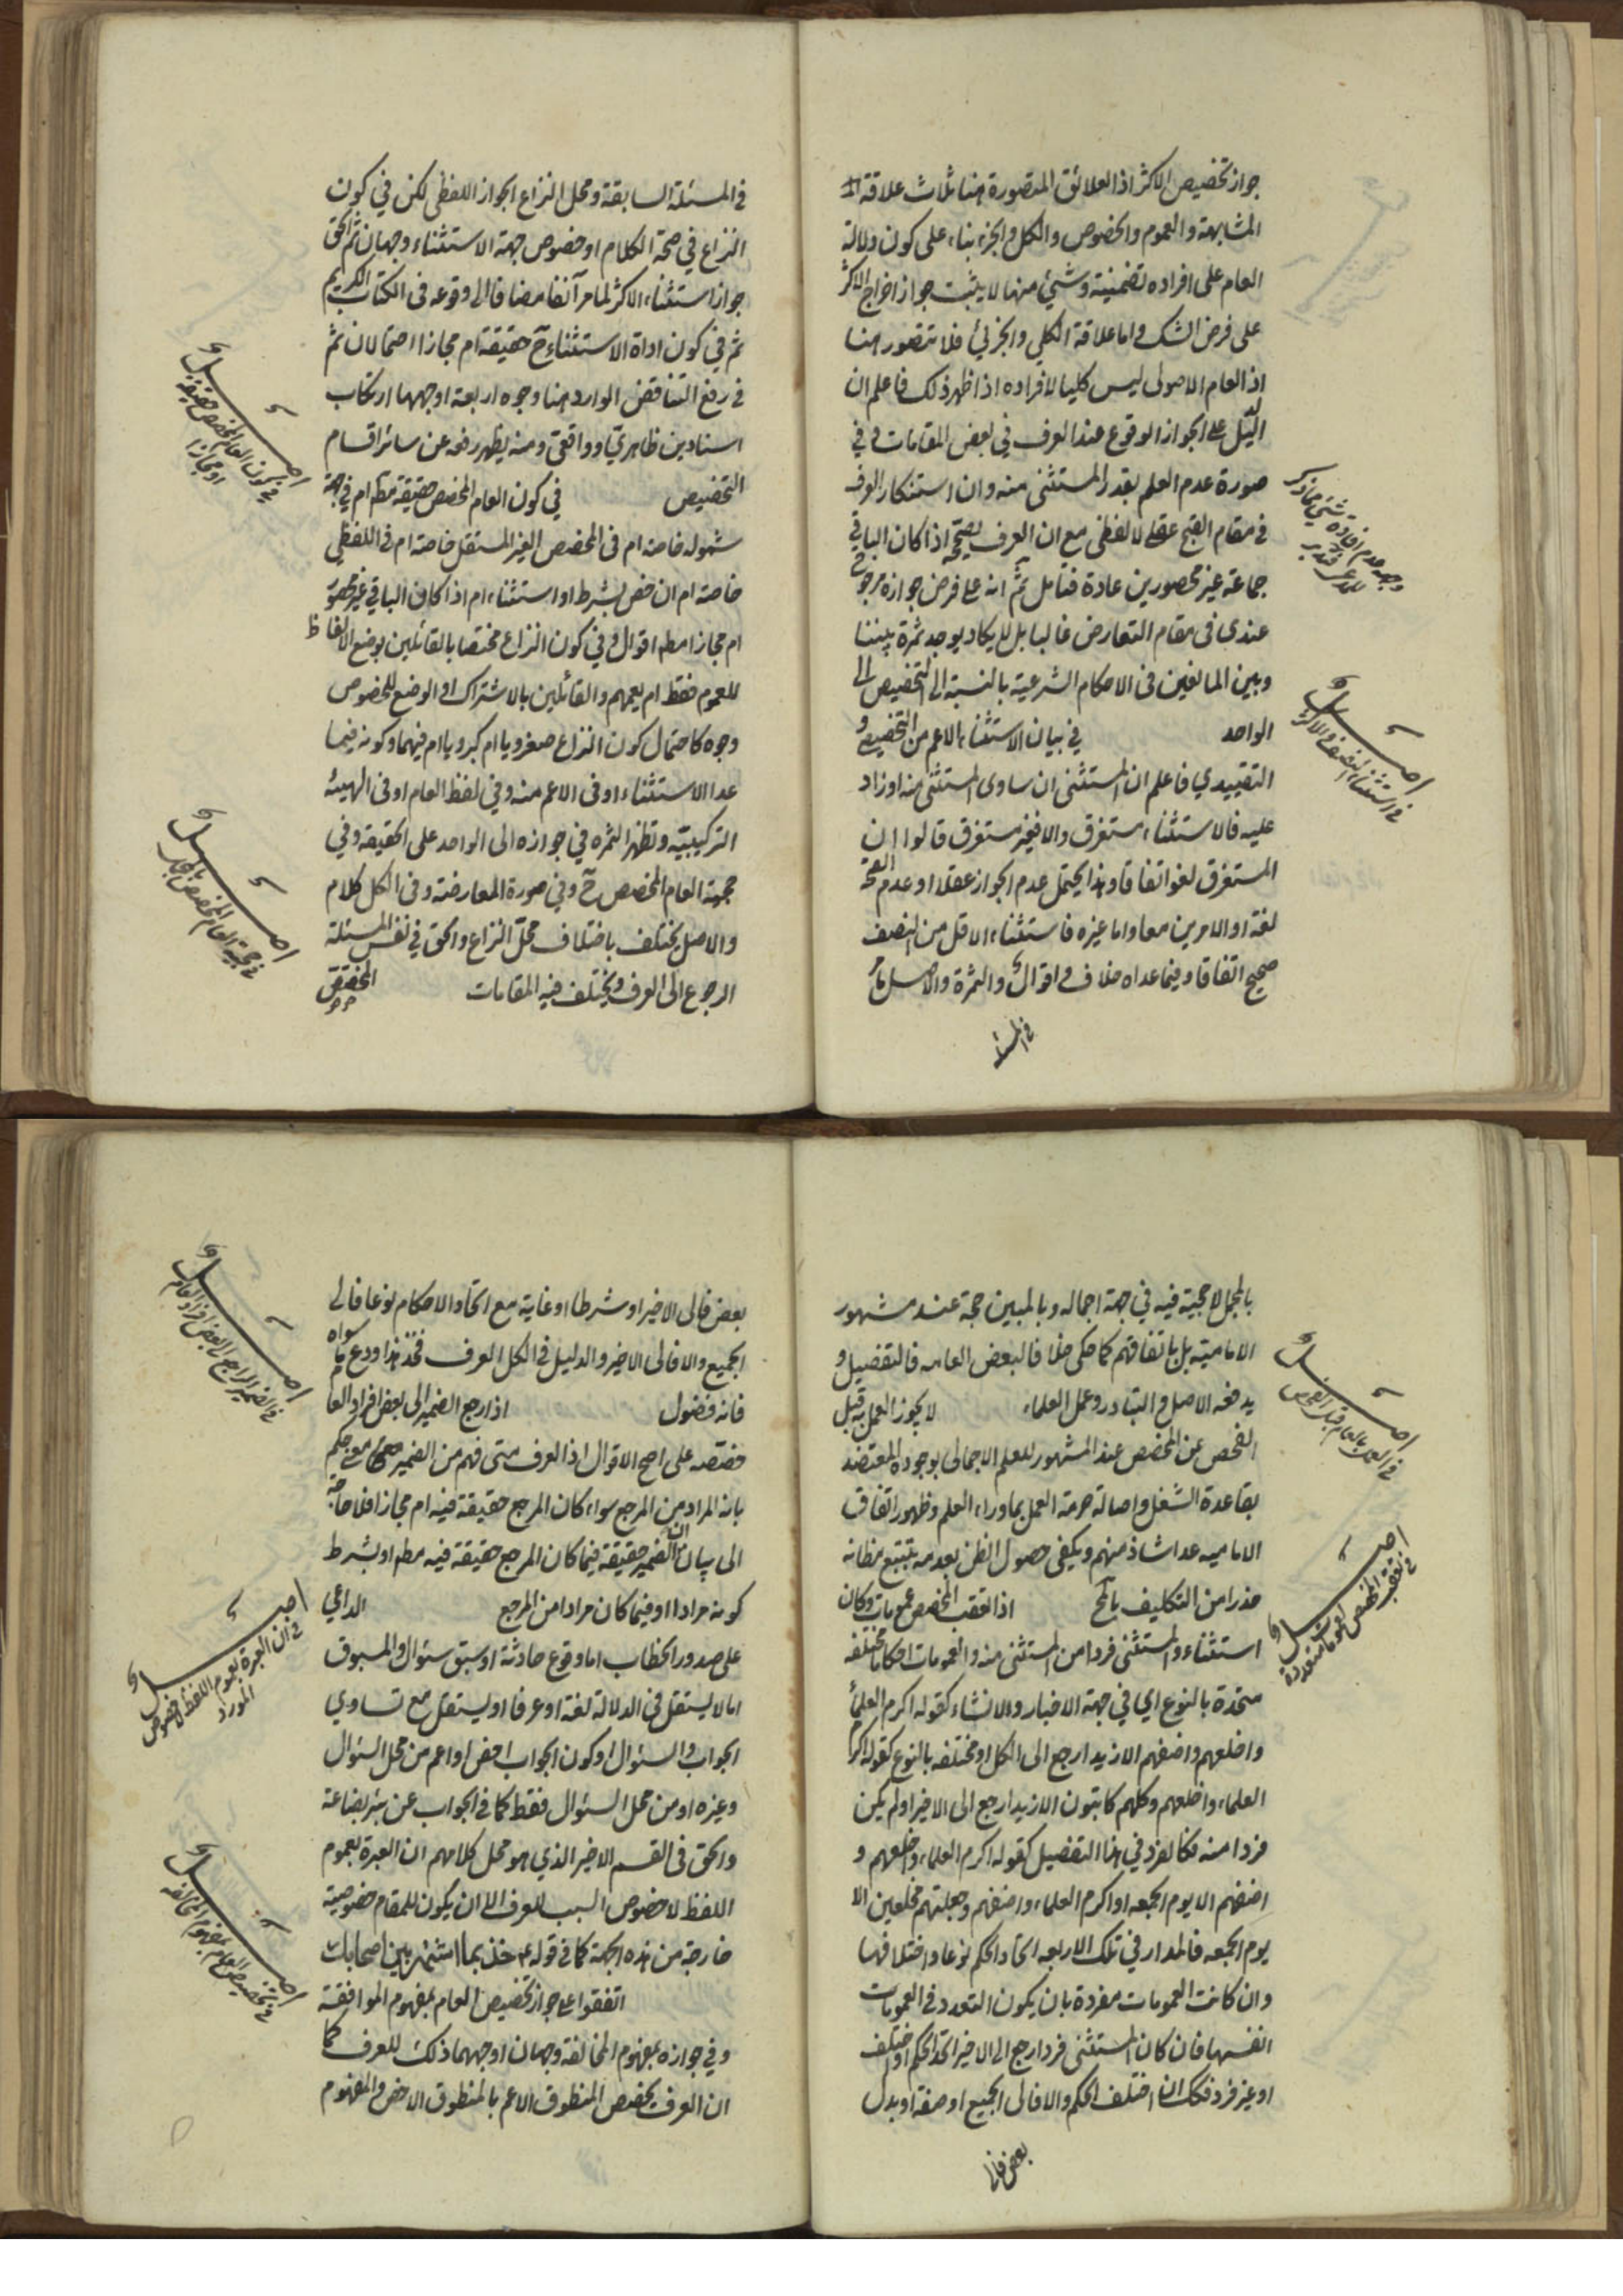 جواز تخصيص الاكثر اذ العلائق المتصورة هنا ثلاث علاقة
المشابهة والعموم والخصوص والكل والجزء بناء على كون دلالة
العام على افراده تضمنية وشئ منها لا يثبت جواز اخراج الاكثر
على فرض الشك واما علاقة الكلي والجزئي فلا تتصور هنا
اذ العام الاصولى ليس كليا لافراده اذا ظهر ذلك فاعلم ان
الدليل على الجواز الوقوع عند العرف في بعض المقامات و في
صورة عدم العلم بقدر المستثنى منه وان استنكار العرف
في مقام القبح عقلى لا لفظى مع ان العرف يصححه اذا كان الباقي
جماعة غير محصورين عادة فتأمل ثم انه على فرض جوازه مرجوح
عندى فى مقام التعارض غالبا بل لا يكاد يوجد ثمرة بيننا
وبين المانعين فى الاحكام الشرعية بالنسبة الى التخصيص الى
الواحد في بيان الاستثناء الاعم من التخصيصى و
التقييدي فاعلم ان المستثنى ان ساوى المستثنى منه او زاد
عليه فالاستثناء مستغرق والا فغير مستغرق قالوا ان
المستغرق لغو اتفاقا وهذا يحتمل عدم الجواز عقلا او عدم الصحة
لغة او الامرين معا واما غيره فاستثناء الاقل من النصف
صحيح اتفاقا وفيما عداه خلاف و اقوال والثمرة والاصل ما مر
في المسئلة
وجه عدم افادة شئ مما ذكر
اصل
في استثناء النصف والاكثر
فى المسئلة السابقة ومحل النزاع الجواز اللفظى لكن في كون
النزاع في صحة الكلام او خصوص جهة الاستثناء وجهان ثم الحق
جواز استثناء الاكثر لما مر آنفا مضافا الى وقوعه فى الكتاب الكريم
ثم في كون اداة الاستثناء ح حقيقة ام مجازا احتمالان ثم
فى رفع التناقض الوارد هنا وجوه اربعة اوجهها ارتكاب
اسنادين ظاهريّ وواقعيّ ومنه يظهر رفعه عن سائر اقسام
التخصيص في كون العام المخصص حقيقة مطم ام في جهة
شموله خاصة ام فى المخصص الغير المستقل خاصة ام فى اللفظي
خاصة ام ان خص بشرط او استثناء ام اذا كان الباقي غير محصور
ام مجازا مطم اقوال و في كون النزاع مختصا بالقائلين بوضع الالفاظ
للعموم فقط ام يعمهم والقائلين بالاشتراك او الوضع للخصوص
وجوه كاحتمال كون النزاع صغرويا ام كبرويا ام فيهما وكونه فيما
عدا الاستثناء او فى الاعم منه وفي لفظ العام او فى الهيئة
التركيبيّة وتظهر الثمره في جوازه الى الواحد على الحقيقة وفي
حجية العام المخصص ح وفي صورة المعارضة وفى الكل كلام
والاصل يختلف باختلاف محلّ النزاع والحق في نفس المسئلة
الرجوع الى العرف ويختلف فيه المقامات المخصص
اصل
في كون العام المخصص حقيقة
او مجازا
اصل
في حجية العام المخصص بالمجمل
بالمجمل لا حجية فيه في جهة اجماله وبالمبين حجة عند مشهور
الامامية بل باتفاقهم كما حكى خلافا لبعض العامه فالتفصيل و
يدفعه الاصل والتبادر وعمل العلماء لا يجوز العمل به قبل
الفحص عن المخصص عند المشهور للعلم الاجمالى بوجوده المعتضد
بقاعدة الشغل واصالة حرمة العمل بما وراء العلم وظهور اتفاق
الاماميه عدا شاذ منهم ويكفى حصول الظن بعدمه بتتبع مظانه
حذرا من التكليف بالحرج اذا تعقب المخصص عمومات وكان
استثناء والمستثنى فردا من المستثنى منه والعمومات احكاما مختلفة
متحدة بالنوع اي في جهة الاخبار والانشاء كقوله اكرم العلماء
واخلعهم واضفهم الا زيدا رجع الى الكل او مختلفه بالنوع كقوله اكرم
العلماء واخلعهم وكلهم كاتبون الا زيدا رجع الى الاخير او لم يكن
فردا منه فكالفرد في هذا التفصيل كقوله اكرم العلماء واخلعهم و
اضفهم الا يوم الجمعه او اكرم العلماء واضفهم وجعلتهم مخلعين الا
يوم الجمعه فالمدار في تلك الاربعه اتحاد الحكم نوعا واختلافها
وان كانت العمومات مفردة بان يكون التعدد فى العمومات
انفسها فان كان المستثنى فردا رجع الى الاخير اتحد الحكم او اختلف
او غير فرد فكك ان اختلف الحكم والا فالى الجميع او صفة او بدل
بعض فالى
اصل
في العمل بالعام قبل الفحص
اصل
في تعقب المخصص لعمومات متعددة
بعض فالى الاخير او شرطا او غاية مع اتحاد الاحكام نوعا فالى
الجميع والا فالى الاخير والدليل فى الكل العرف فخذ هذا ودع ما سواه
فانه فضول اذا رجع الضمير الى بعض افراد العام
خصصه على اصح الاقوال اذ العرف متى فهم من الضمير معنى حكم
بانه المراد من المرجع سواء كان المرجع حقيقة فيه ام مجازا فلا حاجة
الى بيان ان الضمير حقيقة فيما كان المرجع حقيقة فيه مطم او بشرط
كونه مرادا او فيما كان مرادا من المرجع الداعي
على صدور الخطاب اما وقوع حادثة او سبق سئوال والمسبوق
اما لا يستقل فى الدلالة لغة او عرفا او يستقل مع تساوي
الجواب والسئوال او كون الجواب اخص او اعم من محل السئوال
وغيره او من محل السئوال فقط كما فى الجواب عن بئر بضاعة
والحق فى القسم الاخير الذي هو محل كلامهم ان العبرة بعموم
اللفظ لا خصوص السبب للعرف الا ان يكون للمقام خصوصية
خارجة من هذه الجهة كما فى قوله ع خذ بما اشتهر بين اصحابك
اتفقوا على جواز تخصيص العام بمفهوم الموافقة
وفي جوازه بمفهوم المخالفة وجهان اوجههما ذلك للعرف كما
ان العرف يخصص المنطوق الاعم بالمنطوق الاخص والمفهوم
اصل
في الضمير الراجع الى بعض افراد العام
اصل
في ان العبرة بعموم اللفظ لا خصوص
المورد
اصل
في تخصيص العام بمفهوم المخالفه